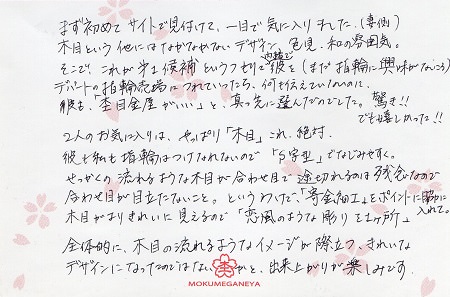 まず初めてサイトで見付けて、一目で気に入りました。(妻側)
木目という他にはなかなかないデザイン、色見、和の雰囲気。
そこで、これが第1候補というつもりで内緒で彼を(まだ指輪に興味がないころ)
デパートの指輪売場につれていったら、何も伝えていないのに、
彼も、「杢目金屋がいい」と、真っ先に選んだのでした。驚き!!
でも嬉しかった!!
2人のお気に入りは、やっぱり「木目」これ、絶対。
彼も私も指輪はつけなれないので「S字型」でなじみやすく。
せっかくの流れるような木目が合わせ目で途切れるのは残念なので
合わせ目が目立たないこと。というわけで、「寄金細工」をポイントに脇に入れて。
木目がよりきれいに見えるので「恋風のような彫りを1ヶ所」
全体的に、木目の流れるようなイメージが際立つ、きれいな
デザインになったのではないかと、出来上がりが楽しみです。
MOKUMEGANEYA